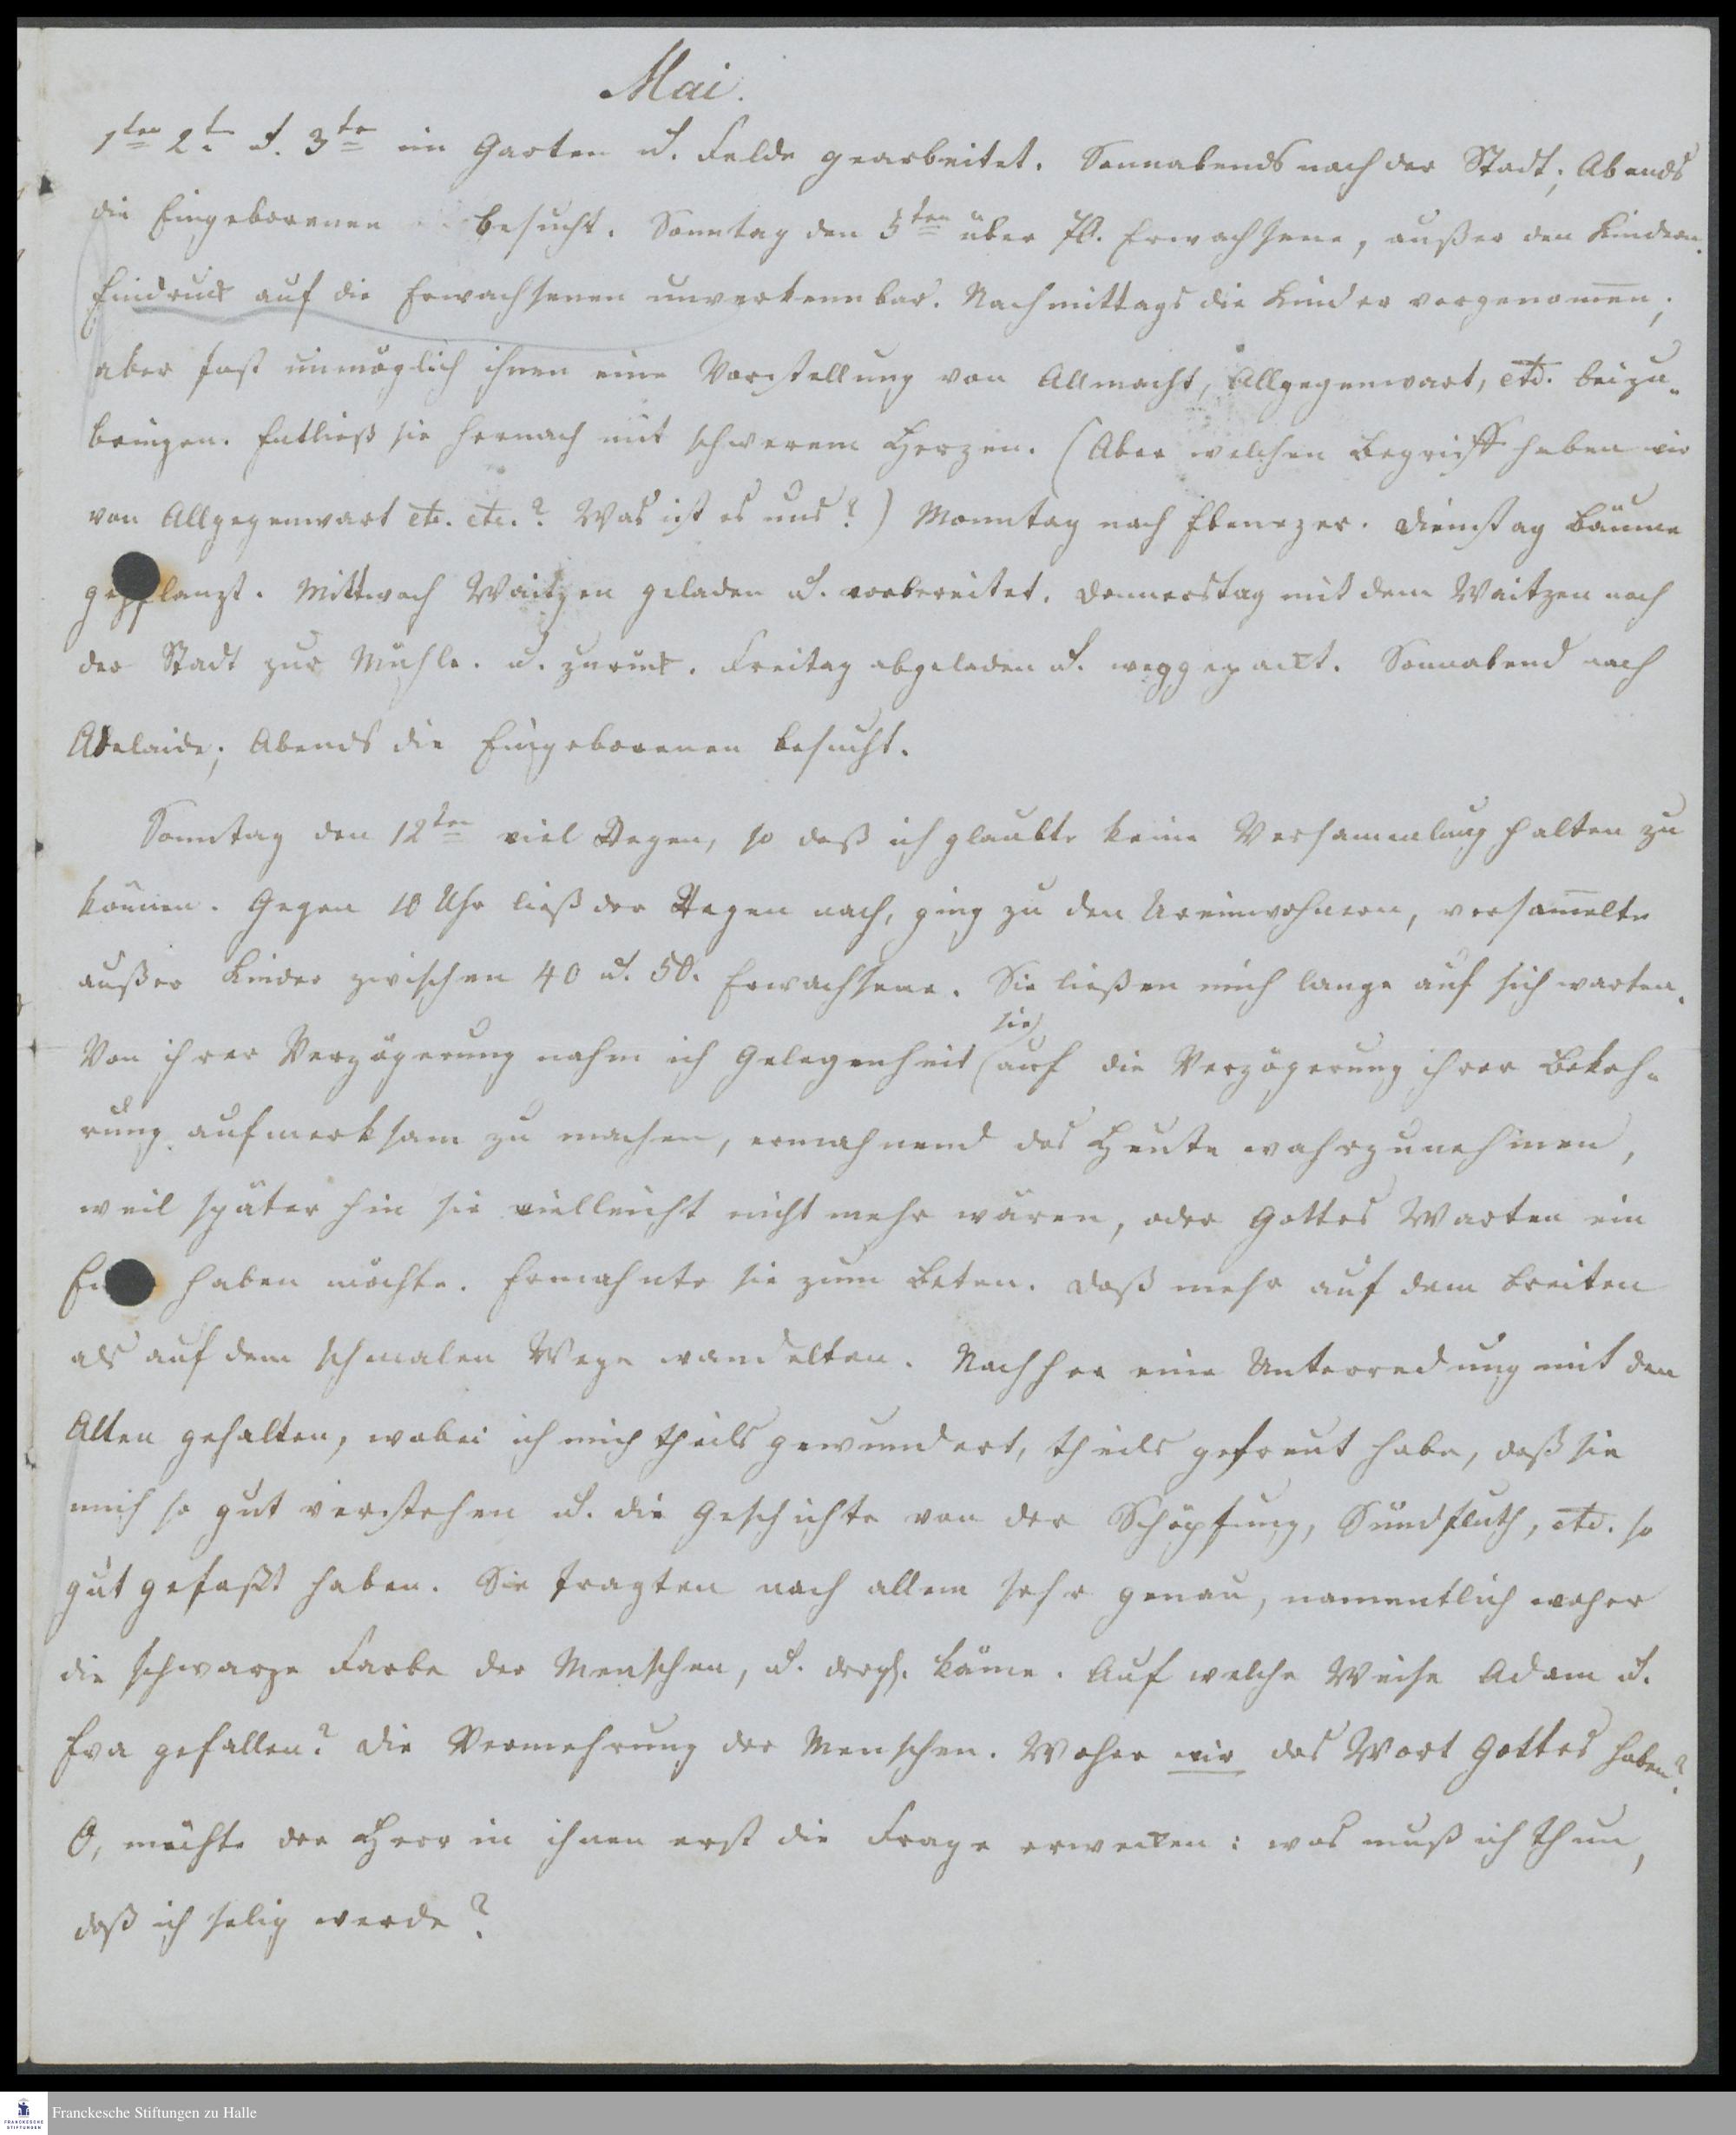 Mai.
1ten 2t. u. 3te im Garten u. Felde gearbeitet. Sonnabends nach der Stadt; Abends
die Eingeborenen besucht. Sonntag den 5ten über 70. Erwachsene, außer den Kindern.
Eindruck auf die Erwachsenen unverkennbar. Nachmittags die Kinder vorgenom̅en;
aber fast unmöglich ihnen eine Vorstellung von Allmacht, Allgegenwart, etc. beizu-
bringen. Entließ sie hernach mit schwerem Herzen. (Aber welchen Begriff haben wir
von Allgegenwart etc. etc.? Was ist es uns?) Monntag nach Ebenezer. Dienstag Bäume
gepflanzt. Mittwoch Waitzen geladen u. vorbereitet. Donnerstag mit dem Waitzen nach
der Stadt zur Mühle. u. zurück. Freitag abgeladen u. weggepackt. Sonnabend nach
Adelaide; Abends die Eingeborenen besucht.
Sonntag den 12ten viel Regen, so daß ich glaubte keine Versammlung halten zu
können. Gegen 10 Uhr ließ der Regen nach, ging zu den Ureinwohnern, versam̅elte
außer Kinder zwischen 40 u. 50. Erwachsene. Sie ließen mich lange auf sich warten.
sie
Von ihrer Verzögerung nahm ich Gelegenheit auf die Verzögerung ihrer Bekeh-
rung aufmerksam zu machen, ermahnend das Heute wahrzunehmen,
weil später hin sie vielleicht nicht mehr wären, oder Gottes Warten ein
En haben möchte. Ermahnte sie zum Beten. Daß mehr auf dem breiten
als auf dem schmalen Wege wandelten. Nachher eine Unterredung mit den
Alten gehalten, wobei ich mich theils gewundert, theils gefreut habe, daß sie
mich so gut verstehen u. die Geschichte von der Schöpfung, Sündfluth, etc. so
gut gefaßt haben. Sie fragten nach allem sehr genau, namentlich woher
die schwarze Farbe der Menschen, u. dergl. käme. Auf welche Weise Adam u.
Eva gefallen? Die Vermehrung der Menschen. Woher wir das Wort Gottes haben?
O, möchte der Herr in ihnen erst die Frage erwecken: was muß ich thun,
daß ich selig werde?
Franckesche Stiftungen zu Halle
FRANCKESCHE
STIFTUNGEN